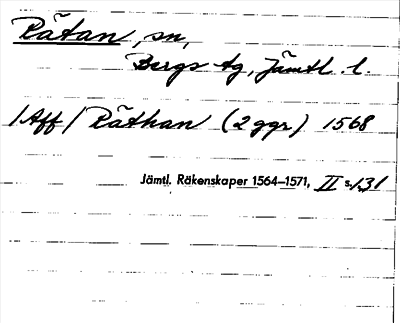 Rätan, sn,
Bergs tg, Jämtl. l.
/Aff/ Räthan (2 ggr) 1568
Jämtl. Räkenskaper 1564–1571, II s. 131